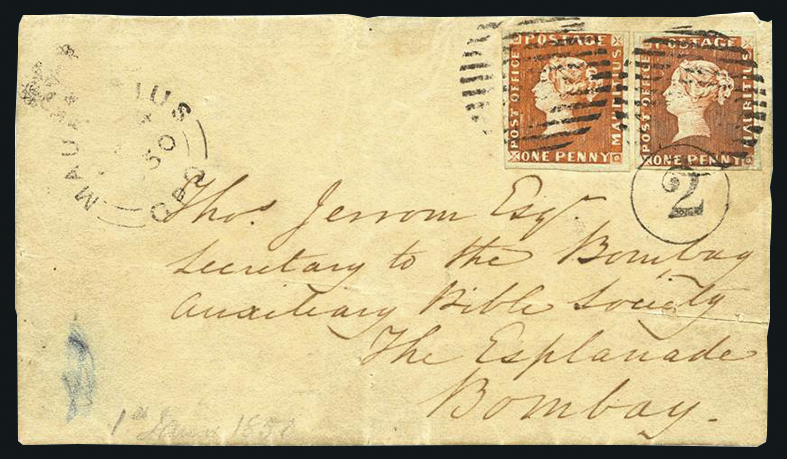 POSTAGE POSTAGE
POST OFFICE MAURITIUS POST OFFICE MAURITIUS
ONE PENNY ONE PENNY
MAURITIUS
GPO
2
Thos. Jerrom Esqr.
Secretary to the Bombay
Auxiliary Bible Society
The Esplanade
Bombay.